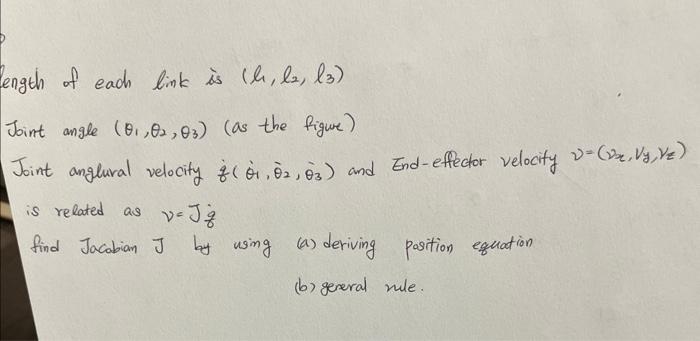 length of each link is (l1, l2, l3)
Joint angle (θ1, θ2, θ3) (as the figure)
Joint anglural velocity q̇(θ̇1, θ̇2, θ̇3) and End-effector velocity v=(vx, vy, vz)
is related as v=Jq̇
find Jacobian J by using (a) deriving position equation
(b) general rule.